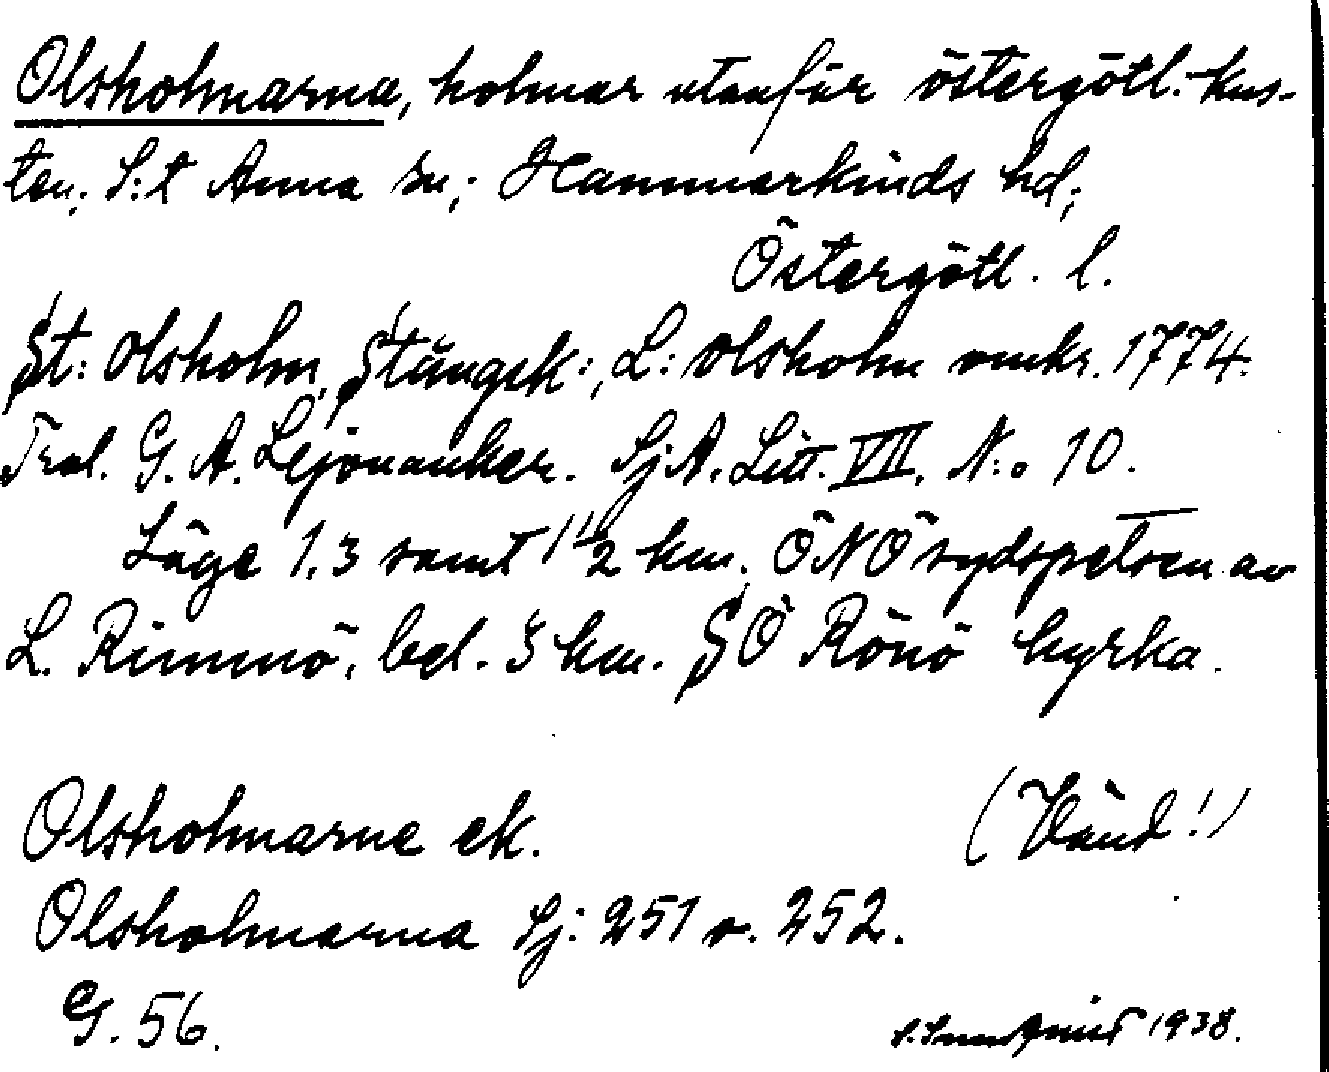 Olsholmarna, holmar utanför östergötl. kus-
ten; S:t Anna sn; Hammarkinds hd;
Östergötl. l.
St: Olsholm, Stångsk:, L: olsholm omkr. 1774.
Trol. G. A. Lejonanker. Sj A. Litt. VII. N:o 10.
Läge 1,3 samt 1 1/2 km. ÖNÖ sydspetsen av
L. Rimmö, bel. 5 km. SÖ Rönö kyrka.
Olsholmarne ek.
(Vänd!)
Olsholmarna Sj: 251 o. 252.
G. 56.
1938.